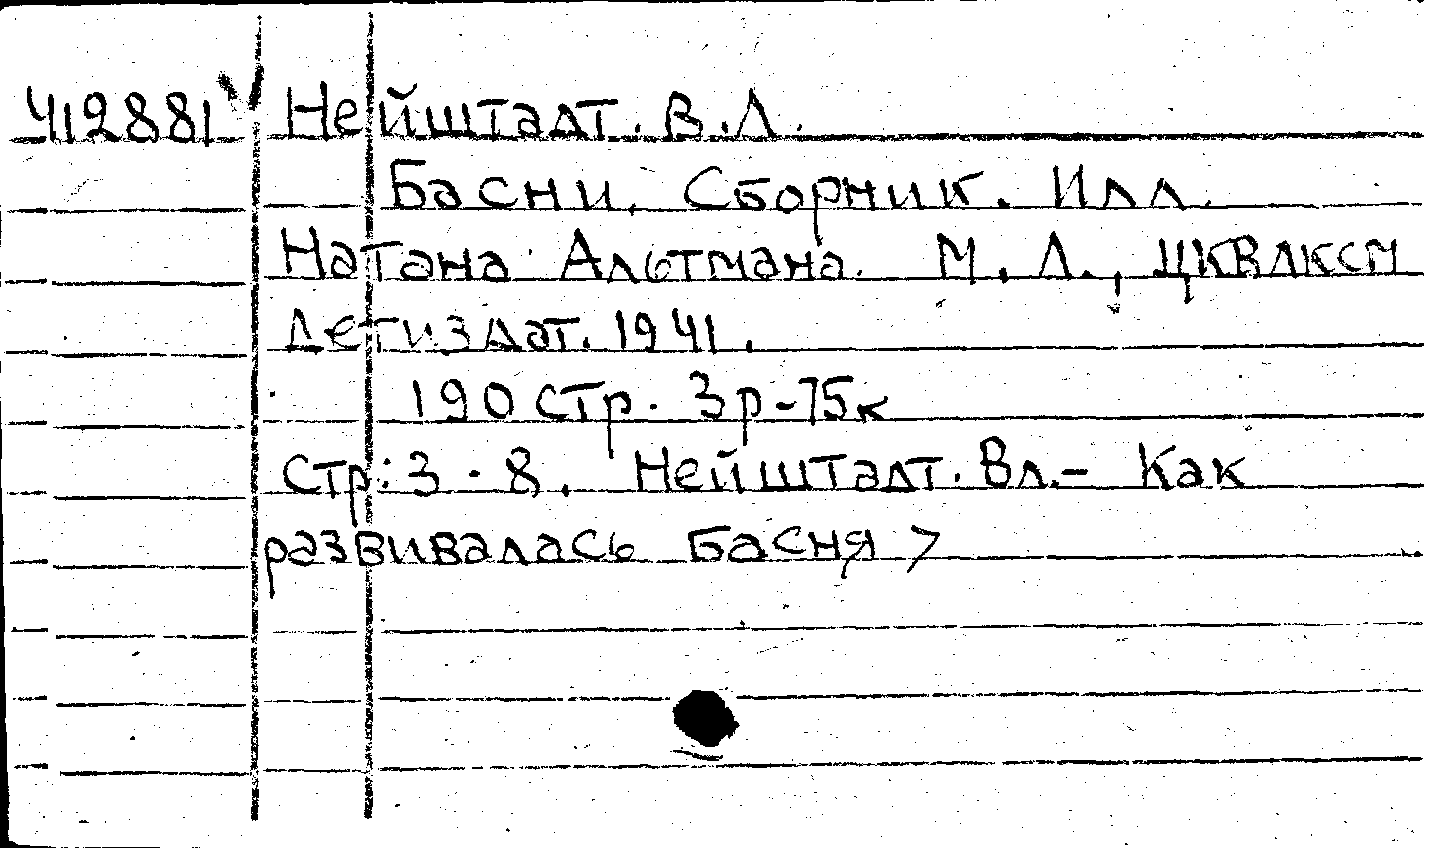 412881 Нейштадт. В.Л.
Басни. Сборник. Илл.
Натана Альтмана. М. Л., ЦКВЛКСМ
Детиздат. 1941.
190 стр. 3р-75к
Стр: 3-8. Нейштадт. Вл.- Как
развивалась басня >